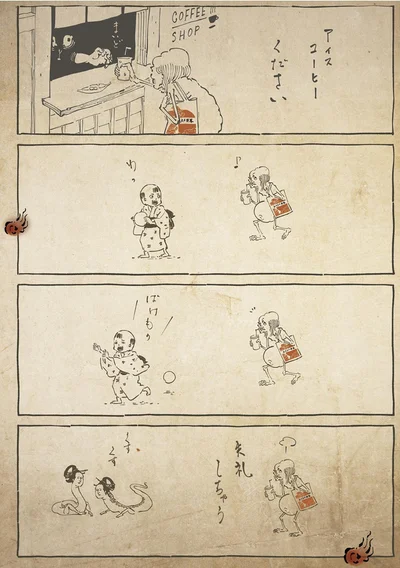 アイス
コーヒー
ください
COFFEE
SHOP
まいど
♪
わっ
ばけもの
失礼
しちゃう
くす
くす